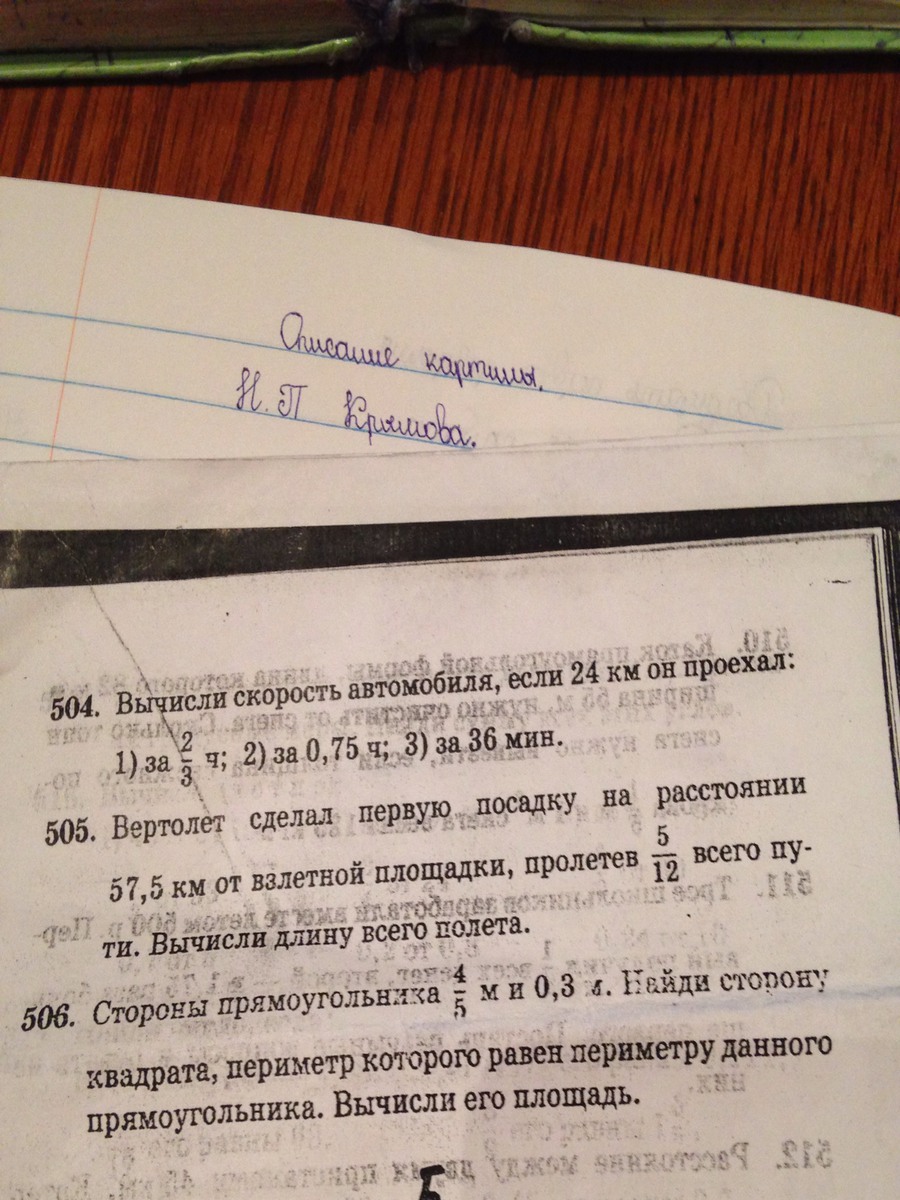 Описание картины.
Н. П Крымова.
504. Вычисли скорость автомобиля, если 24 км он проехал:
1) за 2/3 ч; 2) за 0,75 ч; 3) за 36 мин.
505. Вертолет сделал первую посадку на расстоянии
57,5 км от взлетной площадки, пролетев 5/12 всего пу-
ти. Вычисли длину всего полета.
506. Стороны прямоугольника 4/5 м и 0,3 м. Найди сторону
квадрата, периметр которого равен периметру данного
прямоугольника. Вычисли его площадь.